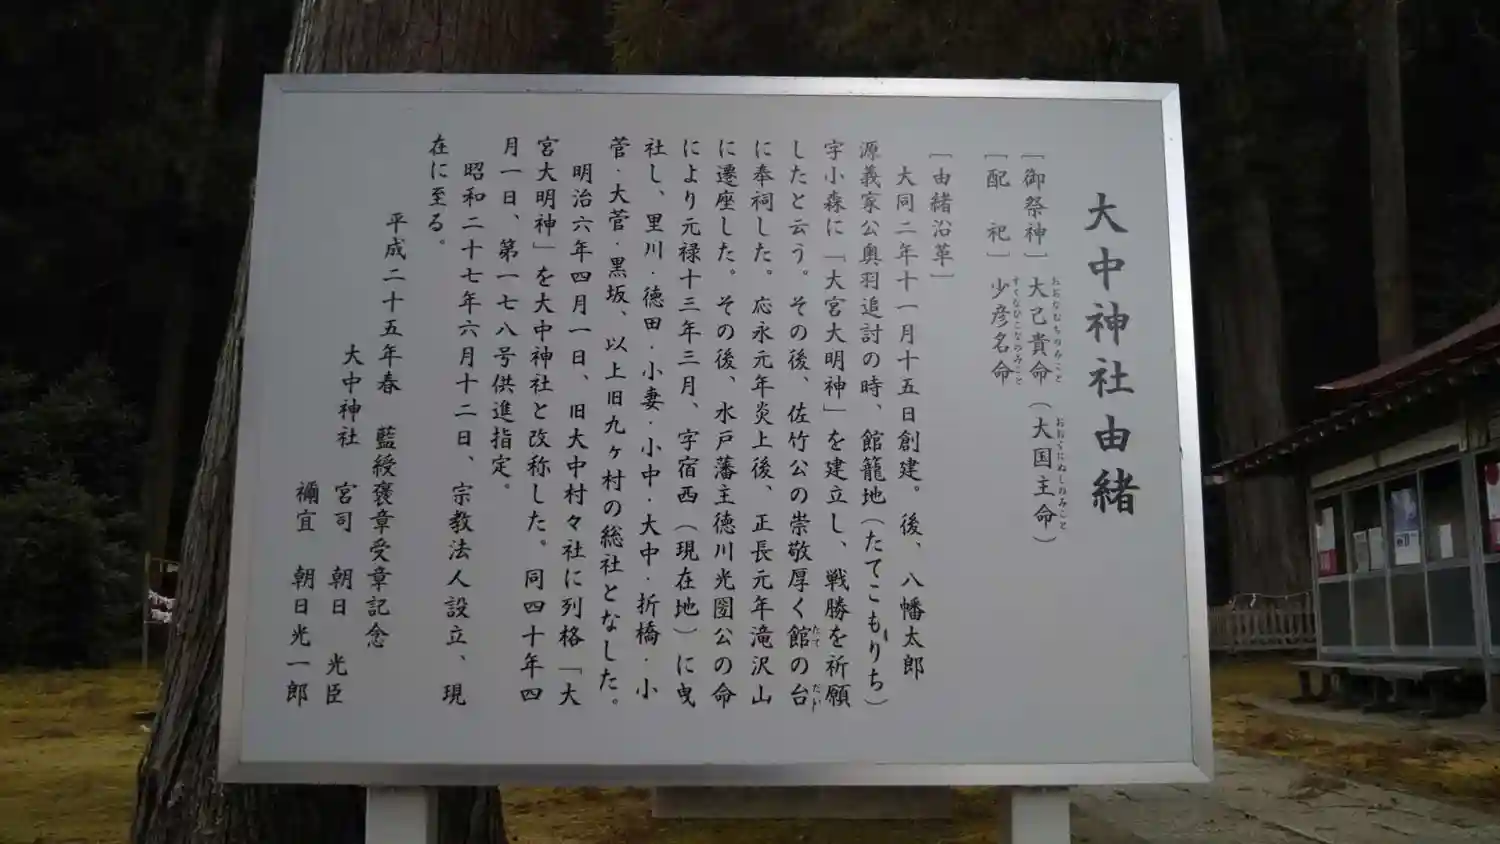 大中神社由緒
［御祭神］大己貴命（大国主命）
おおなむちのみこと
おおくにぬしのみこと
［配　祀］少彦名命
すくなひこなのみこと
［由緒沿革］
大同二年十一月十五日創建。後、八幡太郎
源義家公奥羽追討の時、館籠地（たてこもりち）
字小森に「大宮大明神」を建立し、戦勝を祈願
したと云う。その後、佐竹公の崇敬厚く館の台
たて
だい
に奉祠した。応永元年炎上後、正長元年滝沢山
に遷座した。その後、水戸藩主徳川光圀公の命
により元禄十三年三月、字宿西（現在地）に曳
社し、里川・徳田・小妻・小中・大中・折橋・小
菅・大菅・黒坂、以上旧九ヶ村の総社となした。
明治六年四月一日、旧大中村々社に列格「大
宮大明神」を大中神社と改称した。同四十年四
月一日、第一七八号供進指定。
昭和二十七年六月十二日、宗教法人設立、現
在に至る。
平成二十五年春　藍綬褒章受章記念
大中神社　宮司　朝日　光臣
禰宜　朝日光一郎